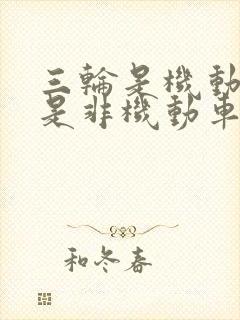 三輪是機動
是非機動車
和冬春